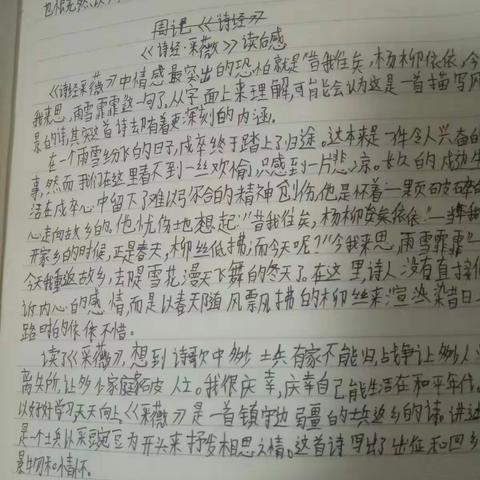 周记《诗经》
《诗经·采薇》读后感
《诗经采薇》中情感最突出的恐怕就是"昔我往矣,杨柳依依,今
我来思,雨雪霏霏这一句了,从字面上来理解,可能会认为这是一首描写风
景的诗,其实这首诗却有着更深刻的内涵。
在一个雨雪纷飞的日子,戍卒终于踏上了归途。这本来是一件令人兴奋的
事,然而我们在这里看不到一丝欢愉,只感到一片悲凉。长久的戍边生
活在戍卒心中留下了难以弥合的精神创伤,他是怀着一颗破碎的
心走向故乡的。他忧伤地想起:"昔我往矣,杨柳依依"——当我
开家乡的时候,正是春天,柳丝低拂;而今天呢?"今我来思,雨雪霏霏"
今天我重返故乡,去却是雪花漫天飞舞的冬天了。在这里,诗人没有直接倾
诉内心的感情,而是以春天随风飘拂的柳丝来渲染昔日上
路时的依依不惜。
读了《采薇》,想到诗歌中多少士兵有家不能归,战争让多少人
离失所,让多少家庭家破人亡。我很庆幸,庆幸自己能生活在和平年代,
以好好学习天天向上。《采薇》是一首镇守边疆的士兵返乡的诗。讲述
是一个士兵以采豌豆为开头来抒发相思之情。这首诗写出了出征和回乡
景物和情怀。